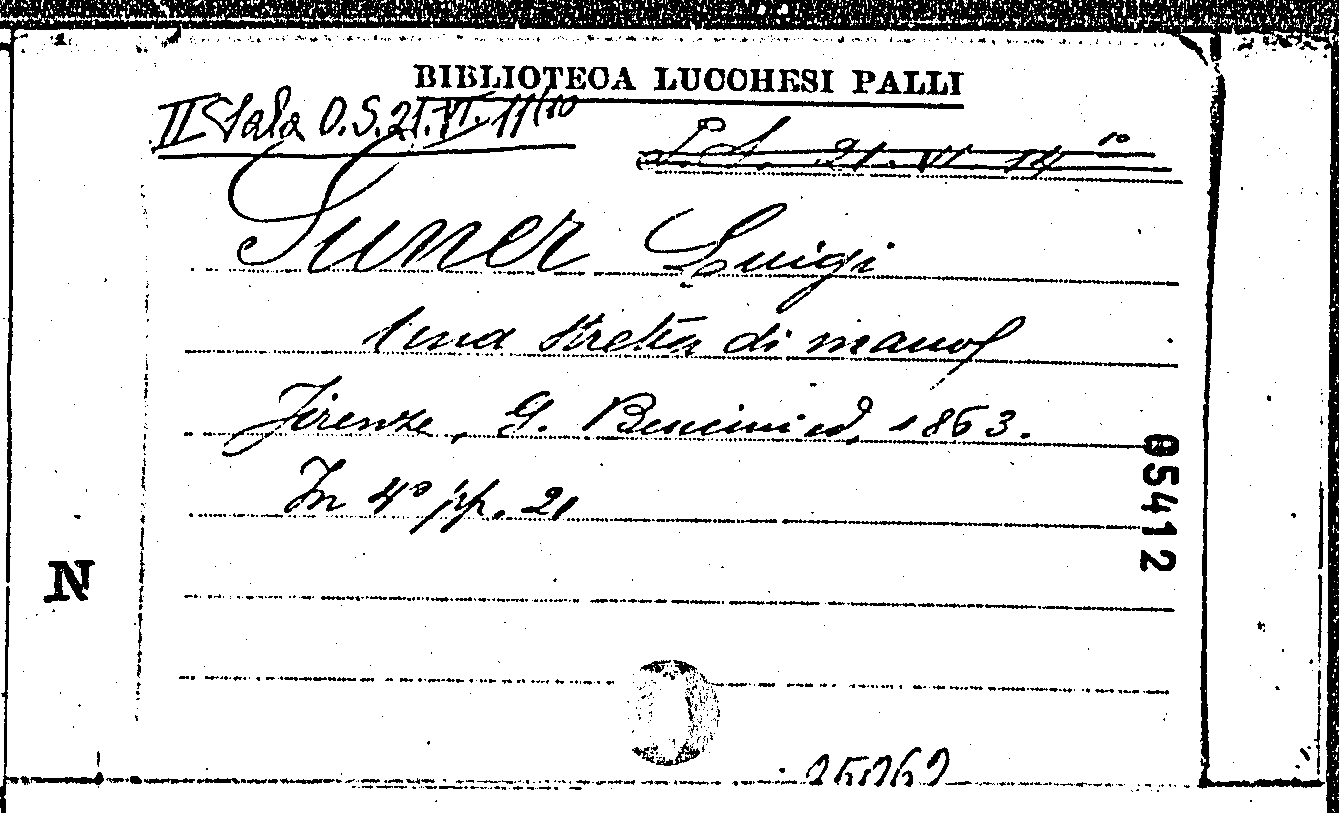 BIBLIOTECA LUCCHESI PALLI
II Sala O.S. 21. VI. 11/10
21. VI. 14 10
Suner Luigi
Una stretta di mano
Firenze, G. Bencini ed. 1863.
In 4° pp. 21
85412
N